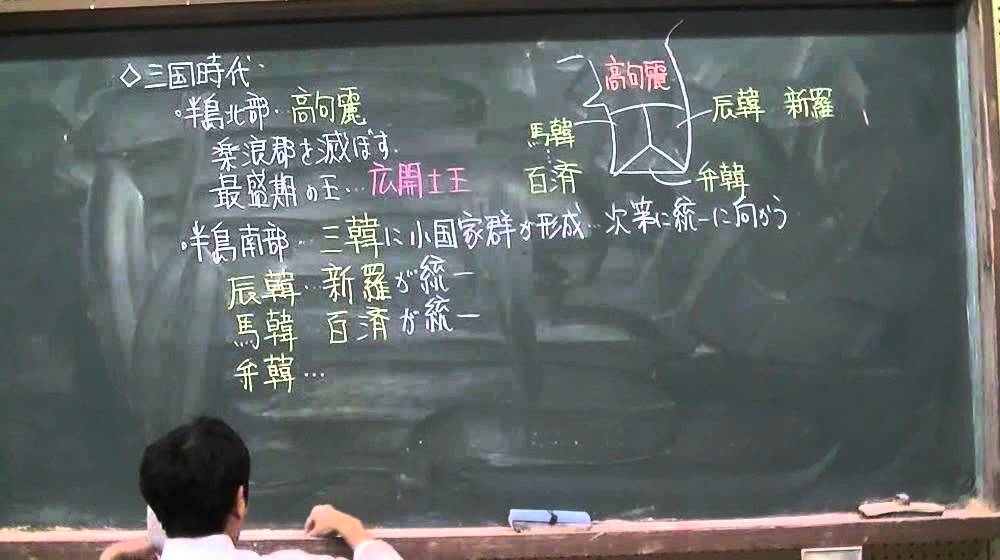 ◇三国時代
・半島北部…高句麗
楽浪郡を滅ぼす.
最盛期の王…広開土王
・半島南部…三韓に小国家群が形成…次第に統一に向かう
辰韓…新羅が統一
馬韓 百済が統一
弁韓…
高句麗
馬韓
百済
辰韓 新羅
弁韓